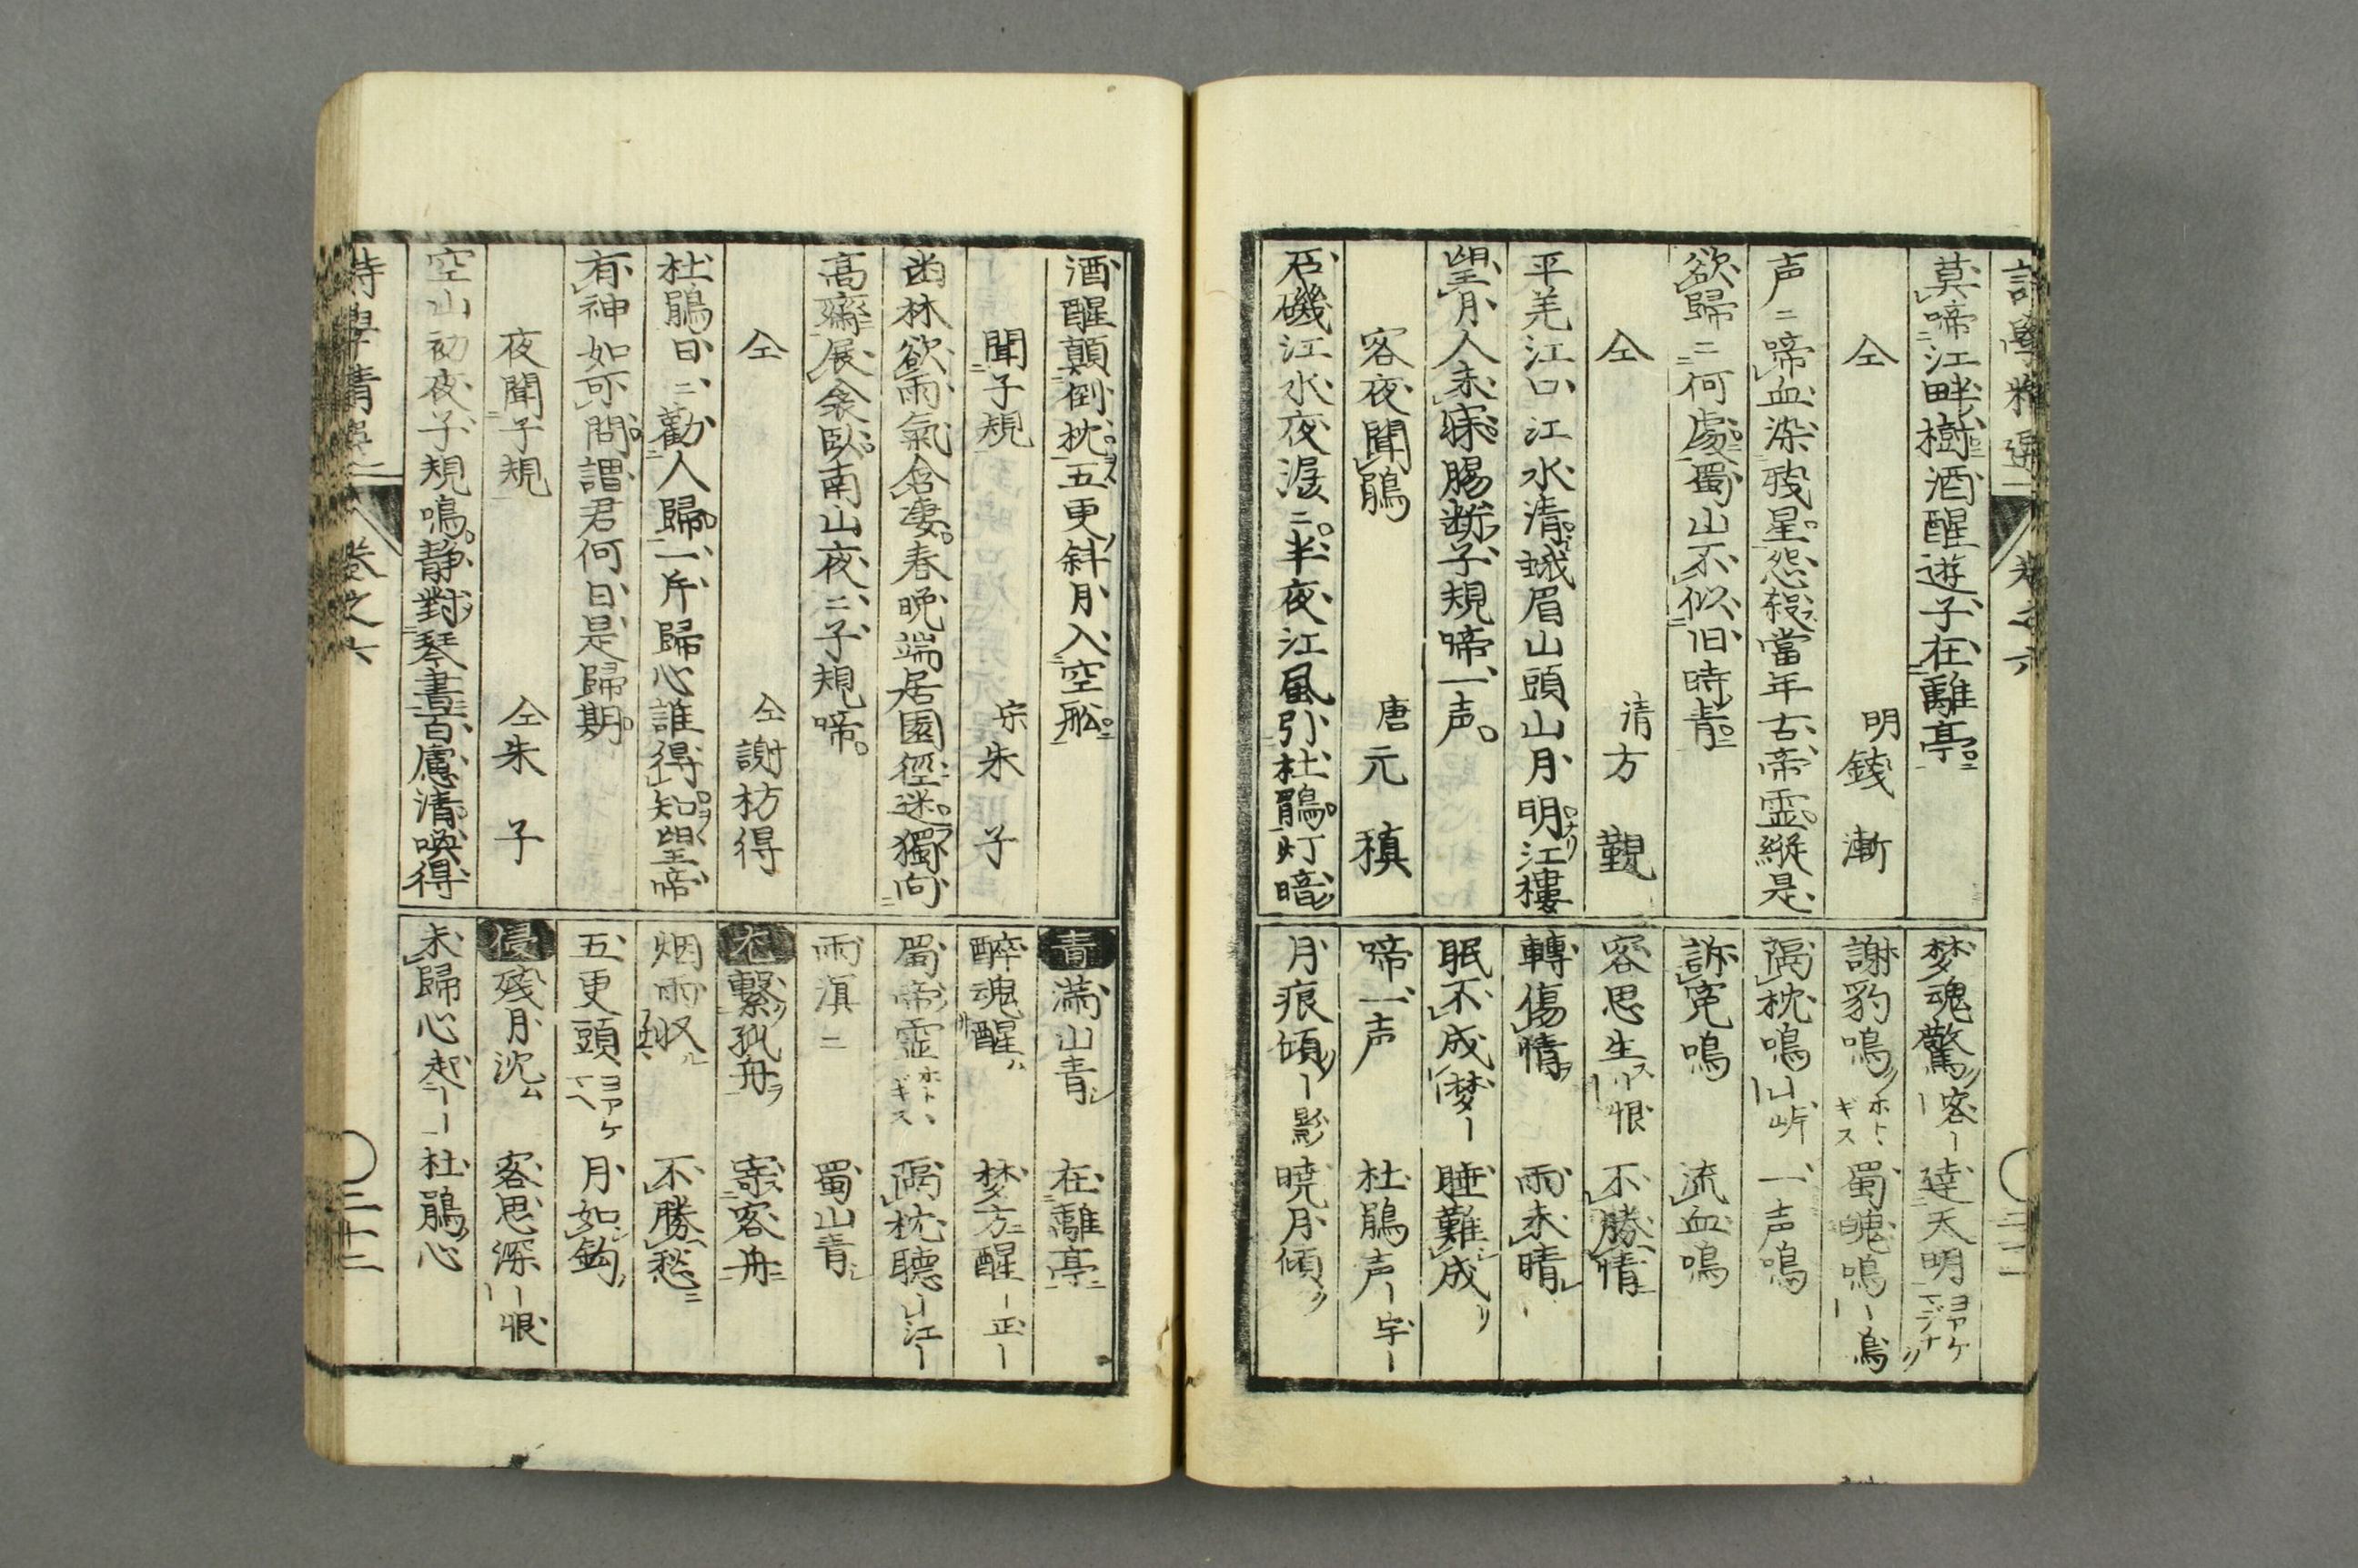 莫啼江畔樹酒醒遊子在離亭
仝 明 錢漸
声〻啼血染残星怨殺當年古帝霊縦是
欲歸〻何處蜀山不似旧時青
仝 清 方覲
平羌江口江水清峨眉山頭山月明江樓
望月人未寐腸断子規啼一声
客夜聞鵑 唐 元稹
石磯江水夜潺〻半夜江風引杜鵑灯暗
夢魂驚 客 達天明 ヨアケマデナリ
謝豹鳴 ホトヽギス 蜀魄鳴 鳥
隔枕鳴 山屿 一声鳴
訴寃鳴 流血鳴
客思生 恨 不勝情
轉傷情 雨未晴
眠不成 夢 睡難成
啼一声 杜鵑声 宇
月痕傾 影 暁月傾
詩學精選二 巻之六
酒醒顛倒枕五更斜月入空舩
聞子規 宋 朱子
凾林欲雨氣含凄春晩端居園徑迷獨向
高齋展衾臥南山夜〻子規啼
仝 仝 謝枋得
杜鵑日〻勸人歸一片歸心誰得知望帝
有神如可問謂君何日是歸期
夜聞子規 仝 朱子
空山初夜子規鳴静對琴書百慮清喚得
青 満山青 在離亭
醉魂醒 夢方醒 正
蜀帝霊 ホトヽギス 隔枕聴 江
雨溟〻 蜀山青
尤 繋孤舟 寄客舟
烟雨収 不勝愁
五更頭 ヨアケマヘ 月如鈎
侵 残月沈 客思深 恨
未歸心 起 杜鵑心
詩學精選二 巻之六 二十二